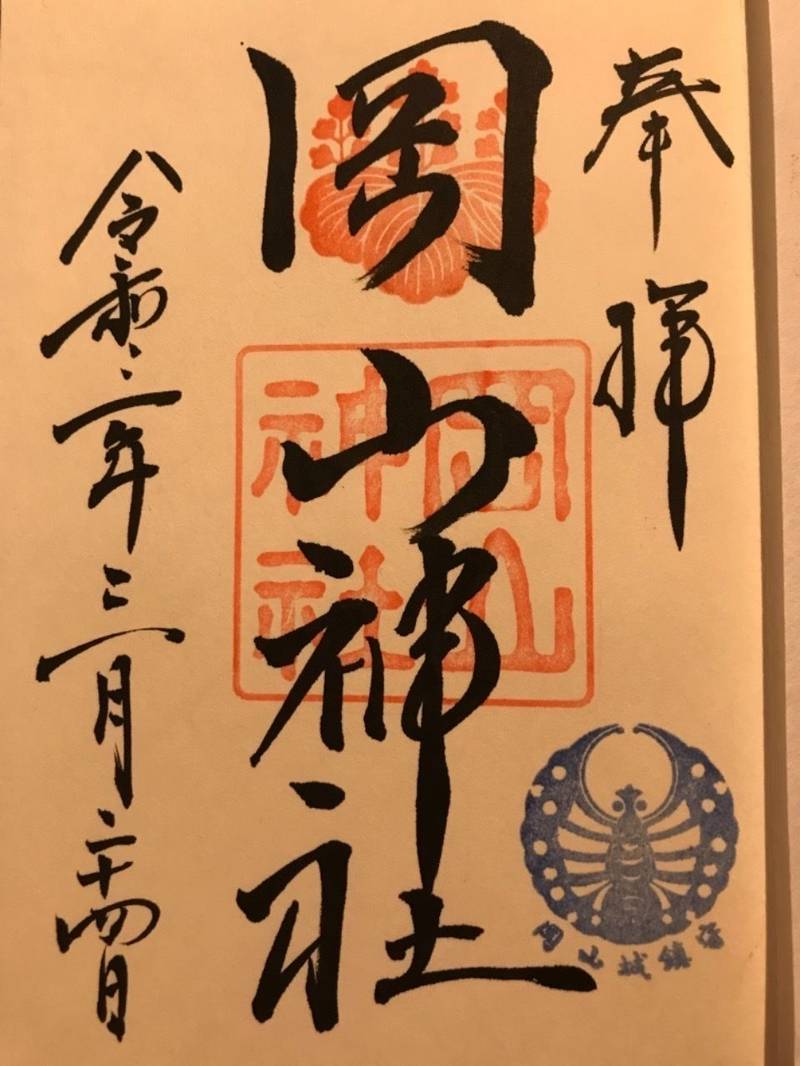 奉拝
岡山神社
岡山神社
岡山城鎮守
令和二年三月二十四日